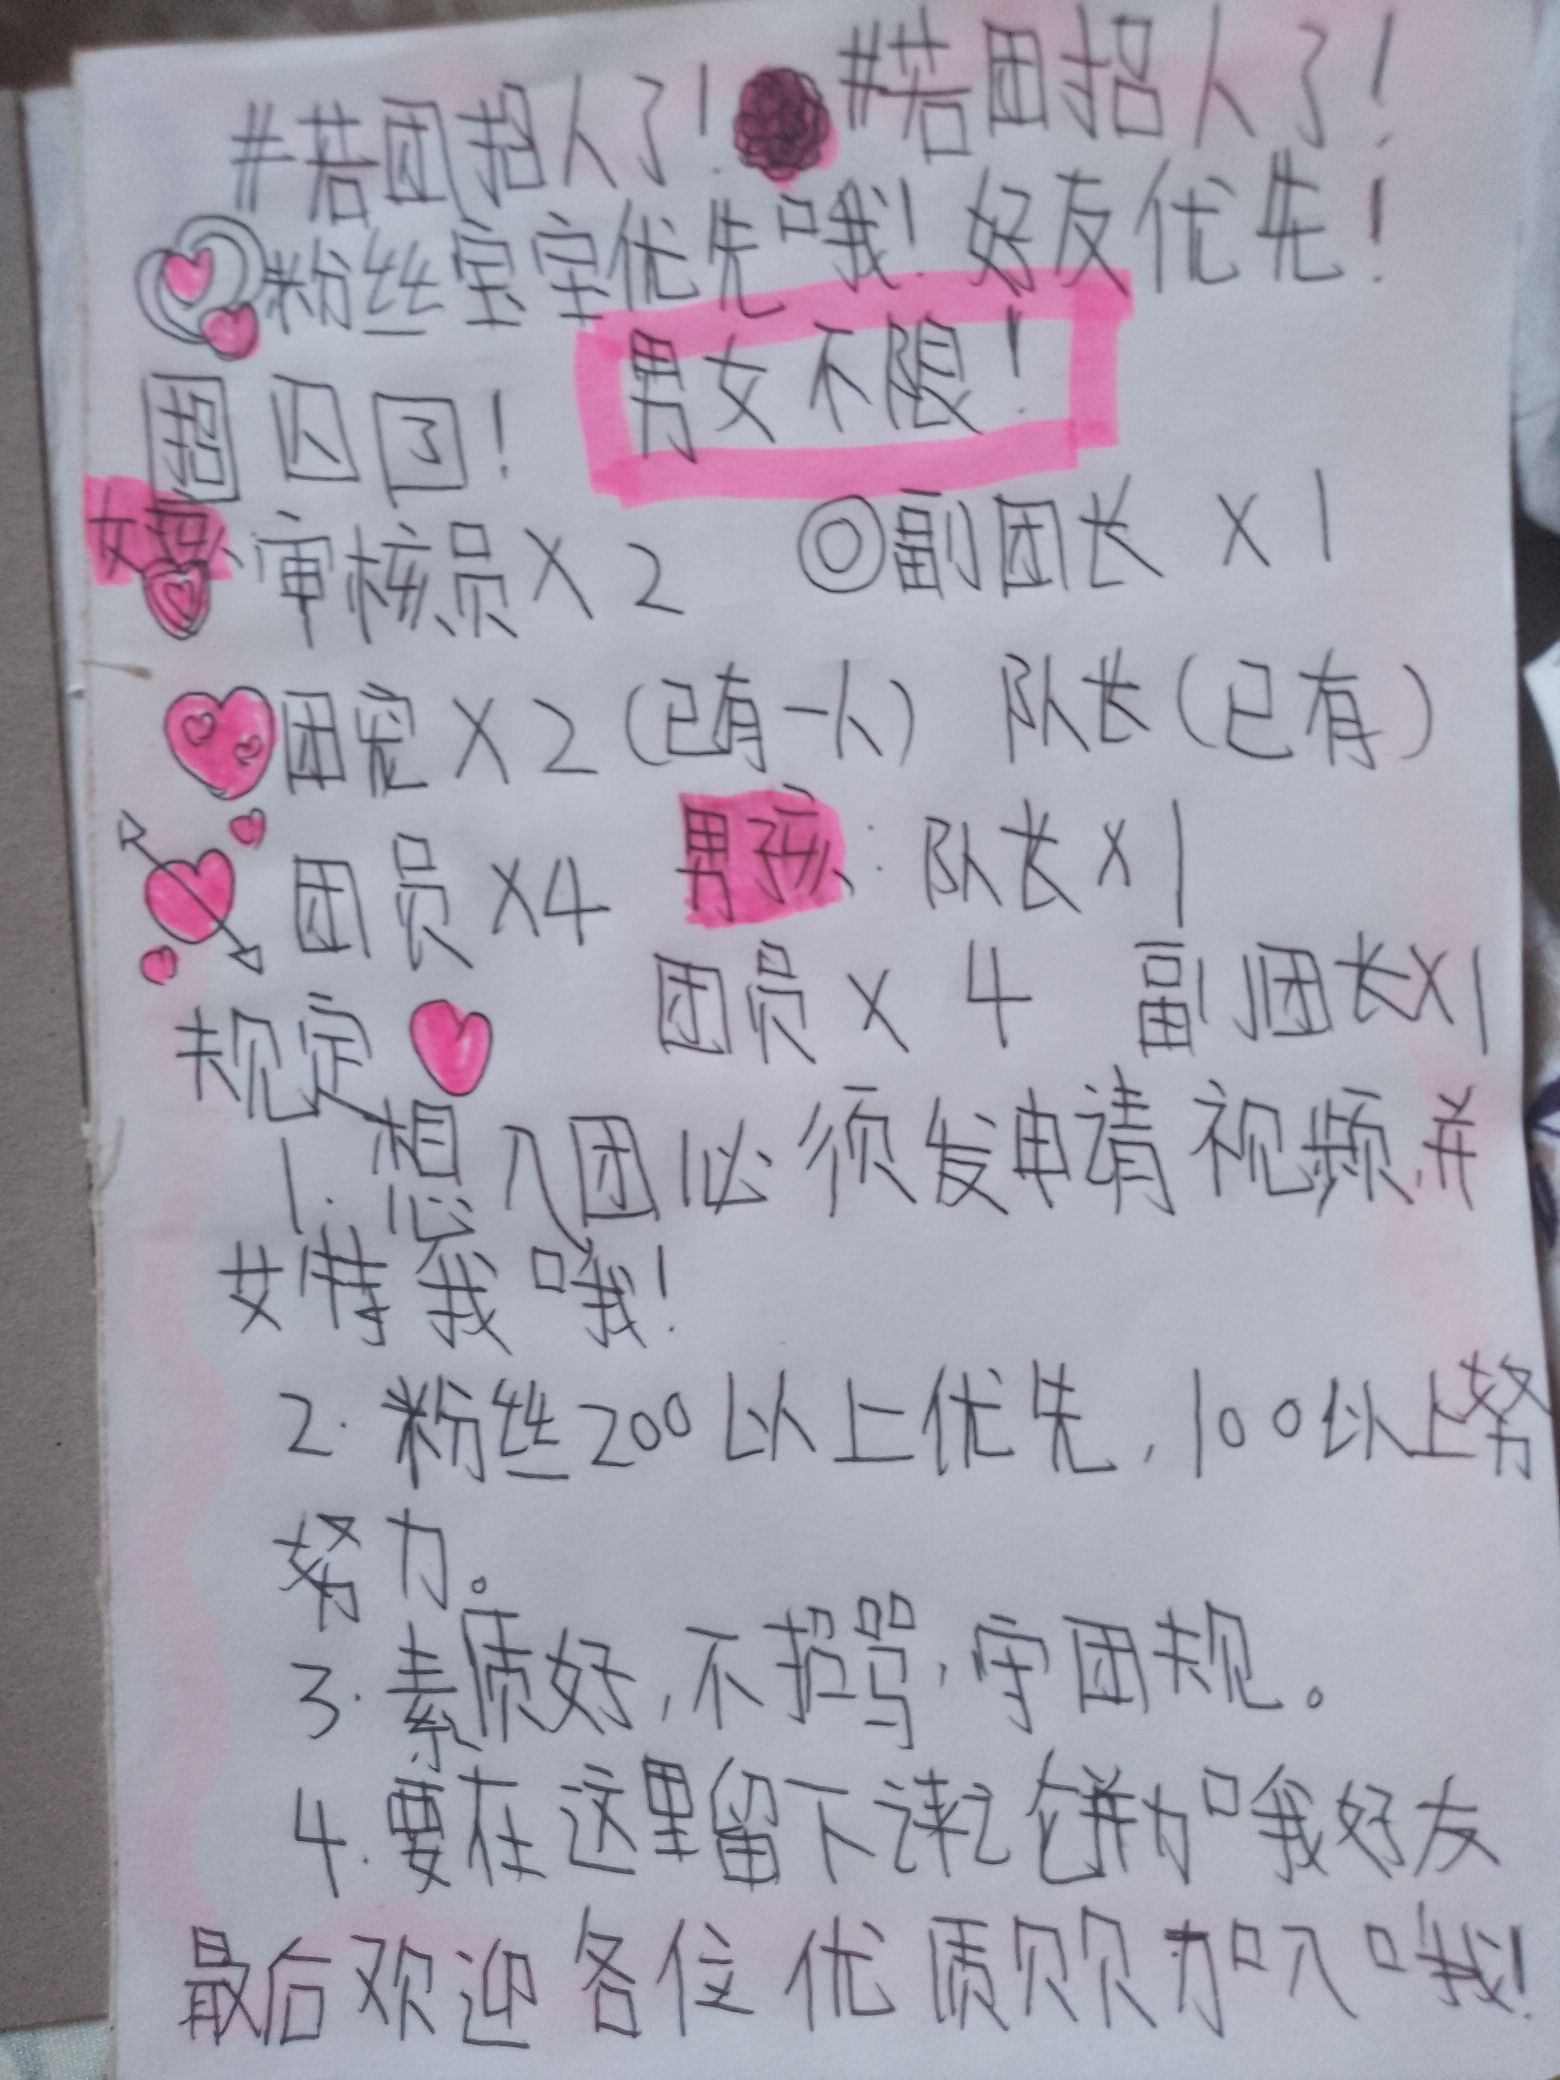 #若团招人了！ #若团招人了！
粉丝宝宝优先哦！好友优先！
招人了！ 男女不限！
女孩：审核员X2 ◎副团长X1
团宠X2(已有一人) 队长(已有)
团员X4 男孩：队长X1
规定 团员X4 副团长X1
1.想入团必须发申请视频并
艾特我哦！
2.粉丝200以上优先，100以上努
努力。
3.素质好，不招骂，守团规。
4.要在这里留下 并加我好友
最后欢迎各位优质贝贝加入哦！